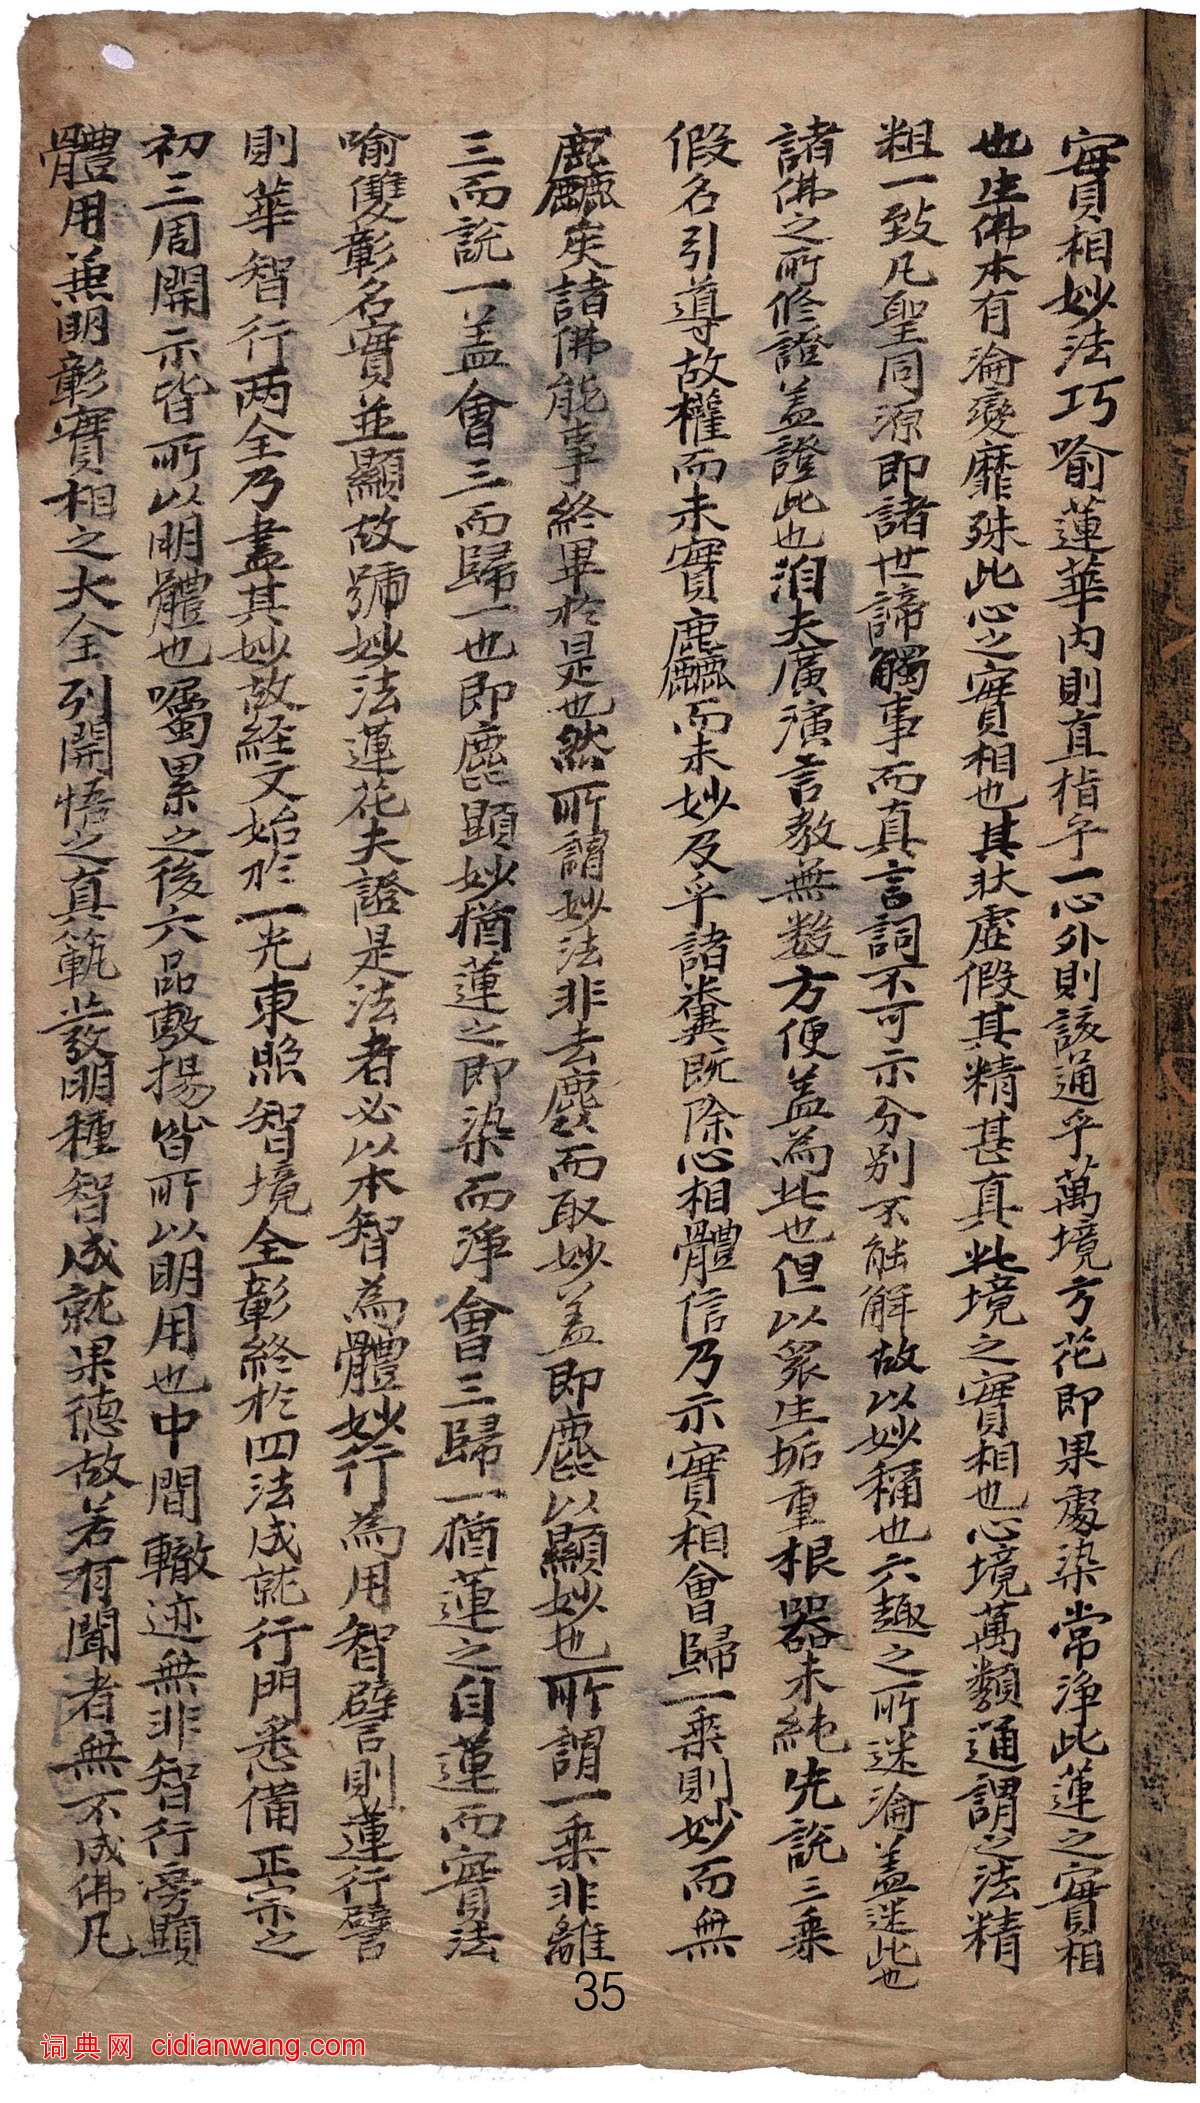 實相妙法巧喻蓮華內則直指乎一心外則該通乎萬境方花即果處染常淨此蓮之實相
也生佛本有淪變靡殊此心之實相也其狀虛假其精甚真此境之實相也心境萬類通謂之法精
粗一致凡聖同源即諸世諦觸事而真言詞不可示分別不能解故以妙稱也六趣之所迷淪盖迷此也
諸佛之所修證盖證此也洎夫廣演言教無數方便盖為此也但以衆生垢重根器未純先説三乗
假名引導故權而未實麤而未妙及乎諸糞既除心相體信乃示實相會歸一乗則妙而無
麤矣諸佛能事終畢於是也然所謂妙法非去麤而取妙盖即麁以顯妙也所謂一乗非離
三而説一盖會三而歸一也即麁顕妙猶蓮之即染而淨會三歸一猶蓮之自蓮而實法
喻雙彰名實並顯故號妙法蓮花夫證是法者必以本智為體妙行為用智譬則蓮行譬
則華智行两全乃盡其妙故経文始於一光東照智境全彰終於四法成就行門悉備正宗之
初三周開示皆所以明體也囑累之後六品敷揚皆所以明用也中間轍迹無非智行旁顕
體用兼明彰實相之大全列開悟之真範發明種智成就果德故若有聞者無不成佛凡
35
词典网 cidianwang.com